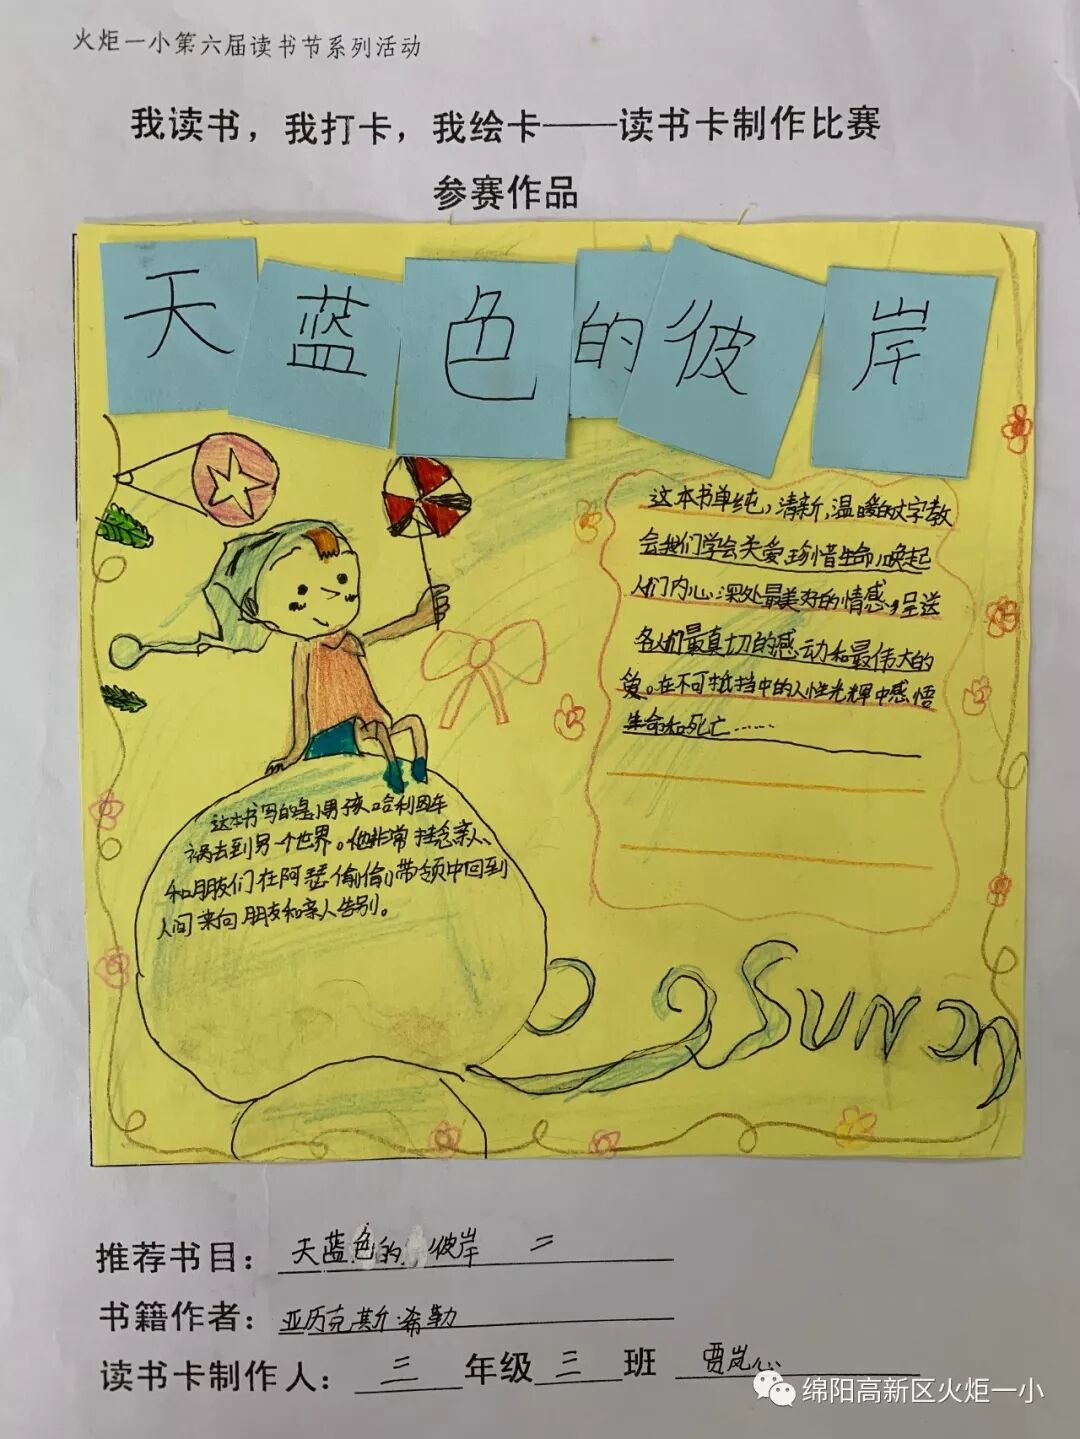 火炬一小第六届读书节系列活动
我读书，我打卡，我绘卡——读书卡制作比赛
参赛作品
天蓝色的彼岸
这本书单纯，清新，温暖的文字教
会我们学会关爱，珍惜生命，唤起
人们内心深处最美好的情感，呈送
各人们最真切的感动和最伟大的
爱。在不可抵挡中的人性光辉中感悟
生命和死亡……
这本书写的是小男孩哈利因车
祸去到另一个世界。他非常挂念亲人、
和朋友们在阿瑟偷偷带领中回到
人间来向朋友和亲人告别。
SUN
推荐书目：天蓝色的彼岸 二
书籍作者：亚历克斯·希勒
读书卡制作人：三年级三班 贾岚心
绵阳高新区火炬一小